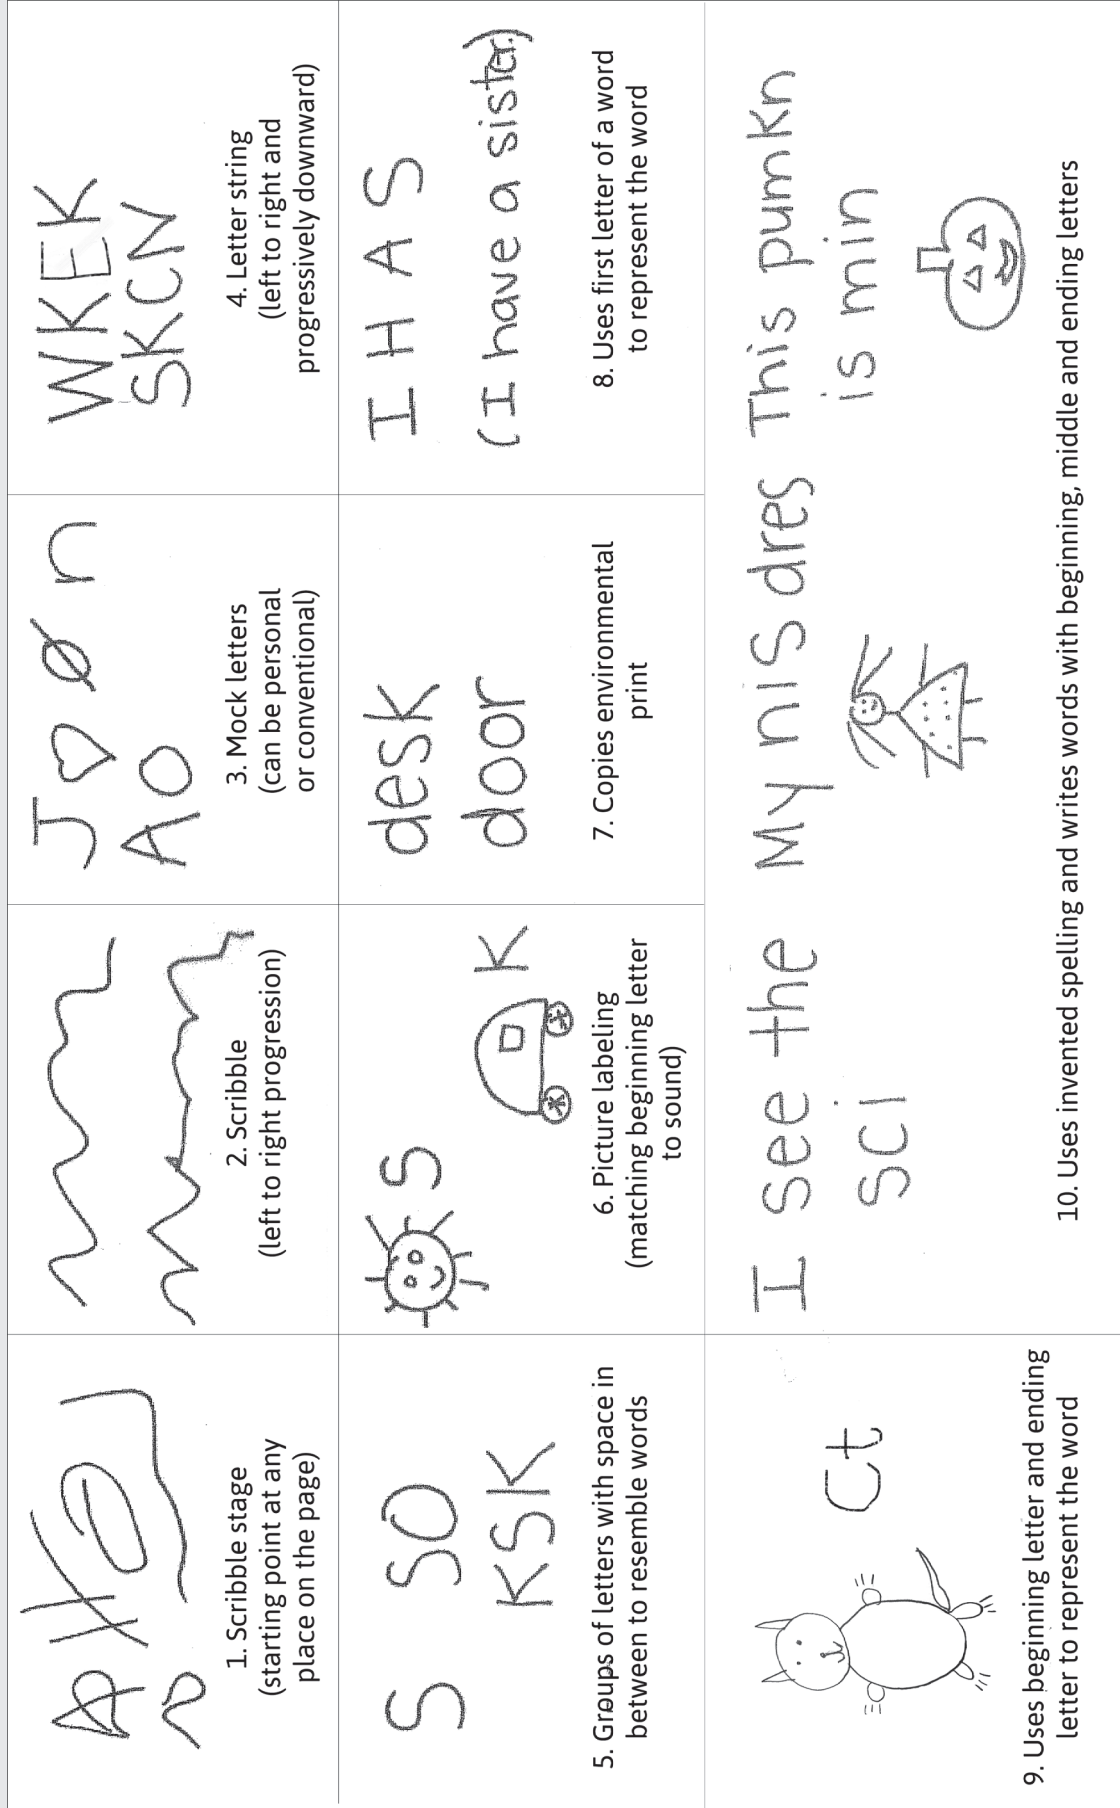 1. Scribble stage
(starting point at any
place on the page)
2. Scribble
(left to right progression)
J n
A O
3. Mock letters
(can be personal
or conventional)
WKEK
SKCN
4. Letter string
(left to right and
progressively downward)
S SO
KSK
5. Groups of letters with space in
between to resemble words
S
K
6. Picture labeling
(matching beginning letter
to sound)
desk
door
7. Copies environmental
print
I H A S
(I have a sister.)
8. Uses first letter of a word
to represent the word
Ct
9. Uses beginning letter and ending
letter to represent the word
I see the
sci
My nis dres
This pumkn
is min
10. Uses invented spelling and writes words with beginning, middle and ending letters